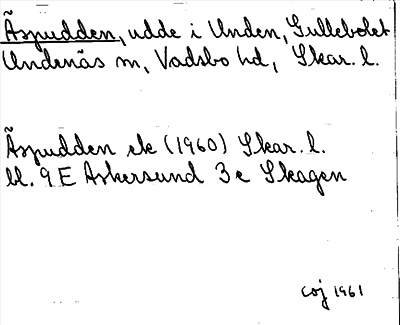 Äspudden, udde i Unden, Gullebolet
Undenäs sn, Vadsbo hd, Skar. l.
Äspudden ek (1960) Skar. l.
bl. 9 E Askersund 3 c Skagen
Coj 1961